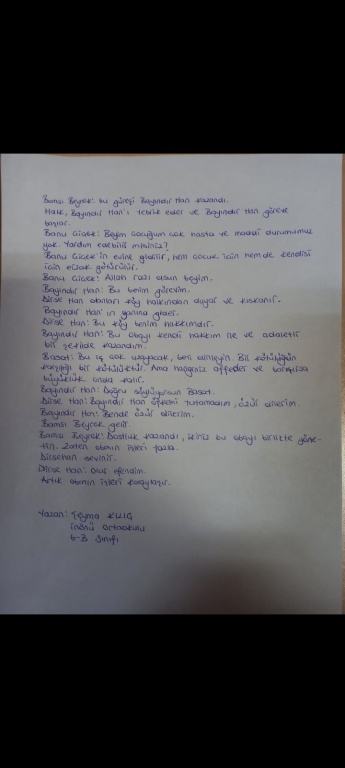 Bamsı Beyrek: bu güreşi Bayındır Han kazandı.
Halk, Bayındır Han'ı tebrik eder ve Bayındır Han göreve
başlar.
Banu Çiçek: Beyim çocuğum çok hasta ve maddi durumumuz
yok. Yardım edebilir misiniz?
Banu Çiçek'in evine gidilir, hem çocuk için hem de kendisi
için götürülür.
Banu Çiçek: Allah razı olsun beyim.
Bayındır Han: Bu benim görevim.
Dirse Han olanları köy halkından duyar ve kıskanır.
Bayındır Han'ın yanına gider.
Dirse Han: Bu köy benim hakkımdır.
Bayındır Han: Bu obayı kendi hakkım ile ve adaletli
bir şekilde kazandım.
Basat: Bu iş çok uzayacak, beni dinleyin. Bir kötülüğün
karşılığı bir kötülüktür. Ama hanginiz affeder ve barışırsa
büyüklük onda kalır.
Bayındır Han: Doğru söylüyorsun Basat.
Dirse Han: Bayındır Han öfkemi tutamadım, özür dilerim.
Bayındır Han: Bende özür dilerim.
Bamsı Beyrek gelir.
Bamsı Beyrek: Dostluk kazandı, ikiniz bu obayı birlikte yöne-
tin. Zaten obanın işleri fazla.
Dirsehan sevinir.
Dirse Han: Olur efendim.
Artık obanın işleri kolaylaşır.
Yazan: Şeyma KILIÇ
İnönü Ortaokulu
6-B Sınıfı